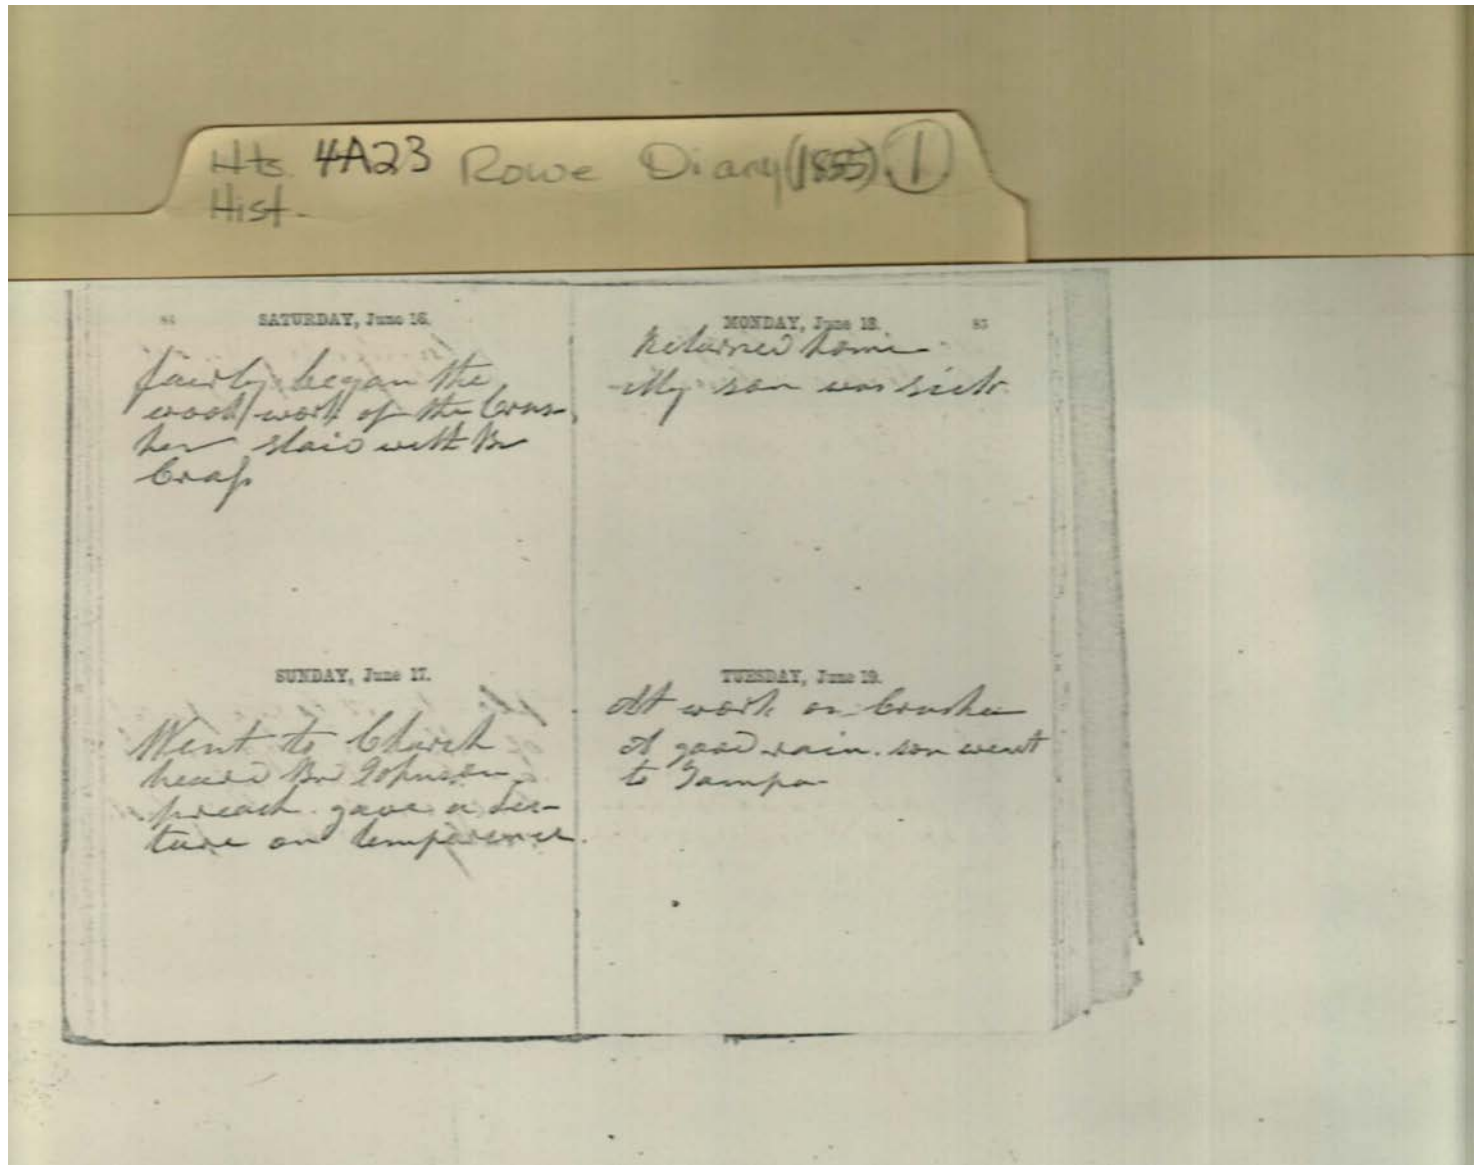 Hts. 4A23 Rowe Diary (1855) 1
Hist.
84 SATURDAY, June 16.
fairly began the
wood work of the Crus-
her staid with Br
SUNDAY, June 17.
Went to Church
heard Br Johnson
preach. gave a lec-
ture on temperance.
MONDAY, June 18. 85
Returned home
My son was sick
TUESDAY, June 19.
At work on Crusher
A good rain. son went
to Tampa